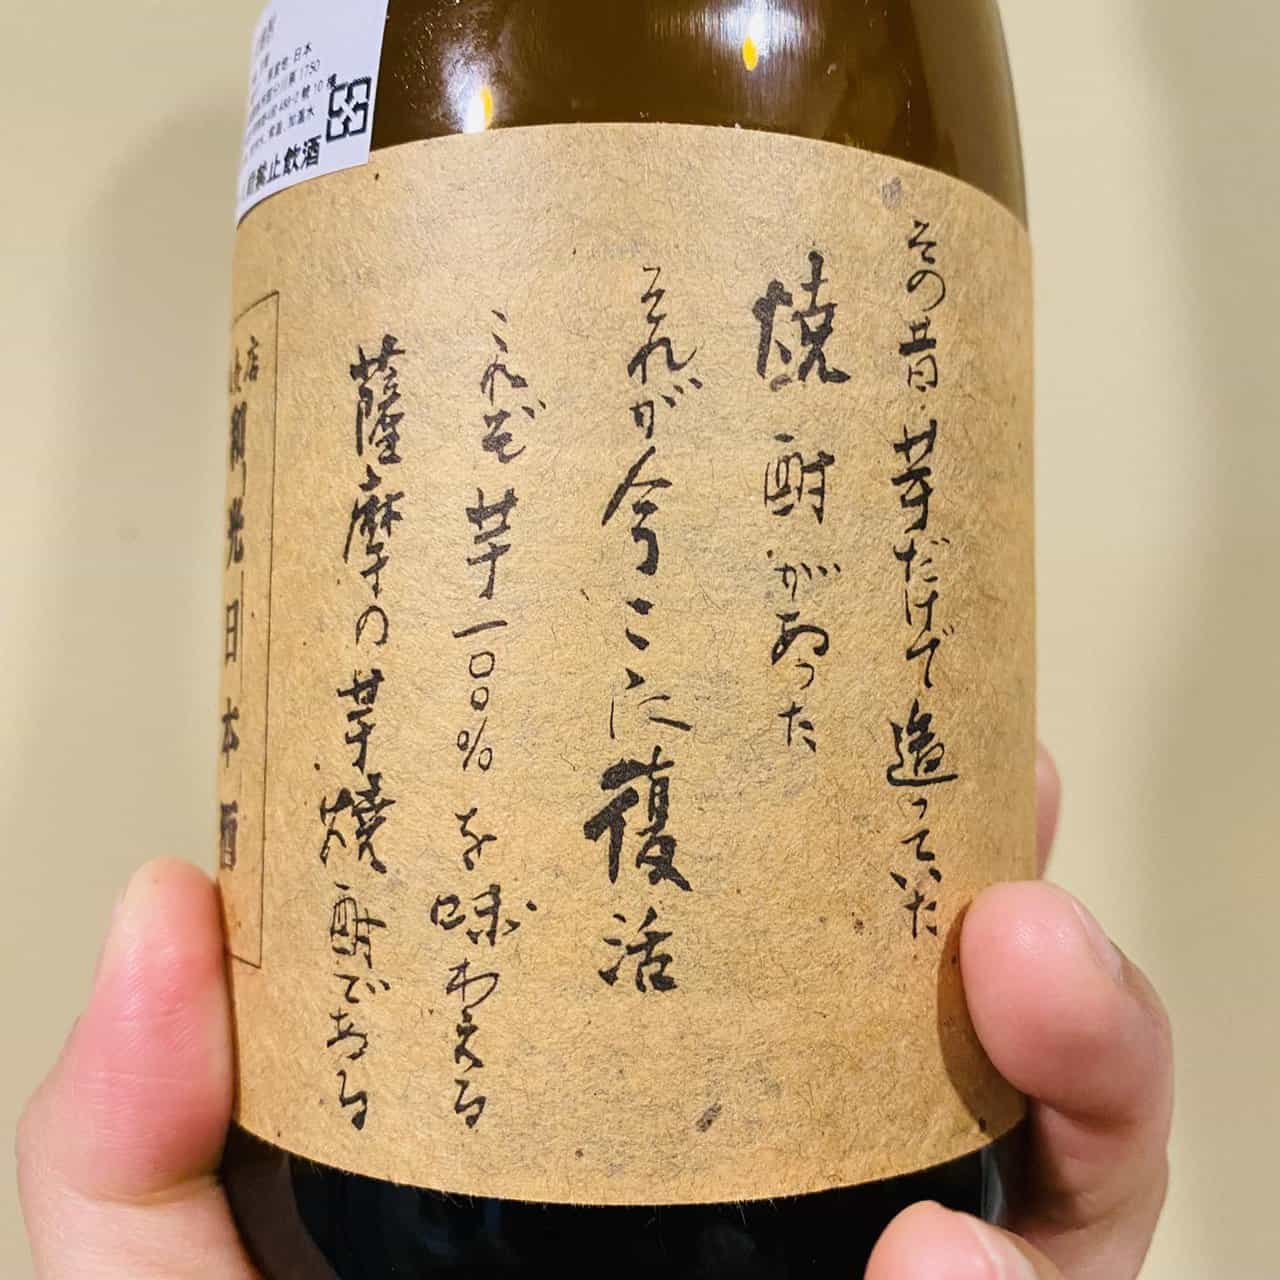 その昔芋だけで造っていた
焼酎があった
それが今ここに復活
これぞ芋一〇〇%を味わえる
薩摩の芋焼酎である
店
光日本酒
原産地:日本
禁止飲酒